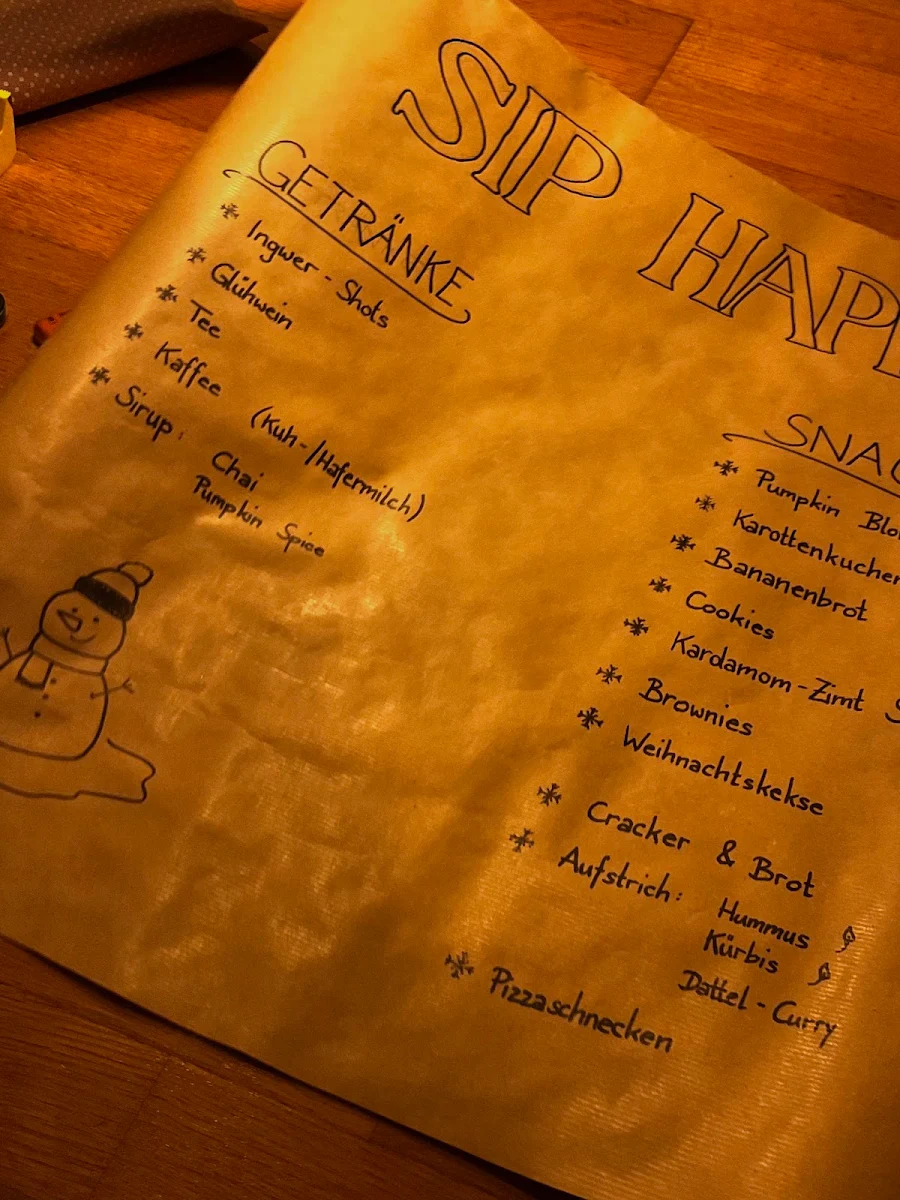 SIP HAPP
GETRÄNKE
Ingwer-Shots
Glühwein
Tee
Kaffee (Kuh-/Hafermilch)
Sirup: Chai
Pumpkin Spice
SNAC
Pumpkin Blo
Karottenkuchen
Bananenbrot
Cookies
Kardamom-Zimt S
Brownies
Weihnachtskekse
Cracker & Brot
Aufstrich: Hummus
Kürbis
Dattel-Curry
Pizzaschnecken